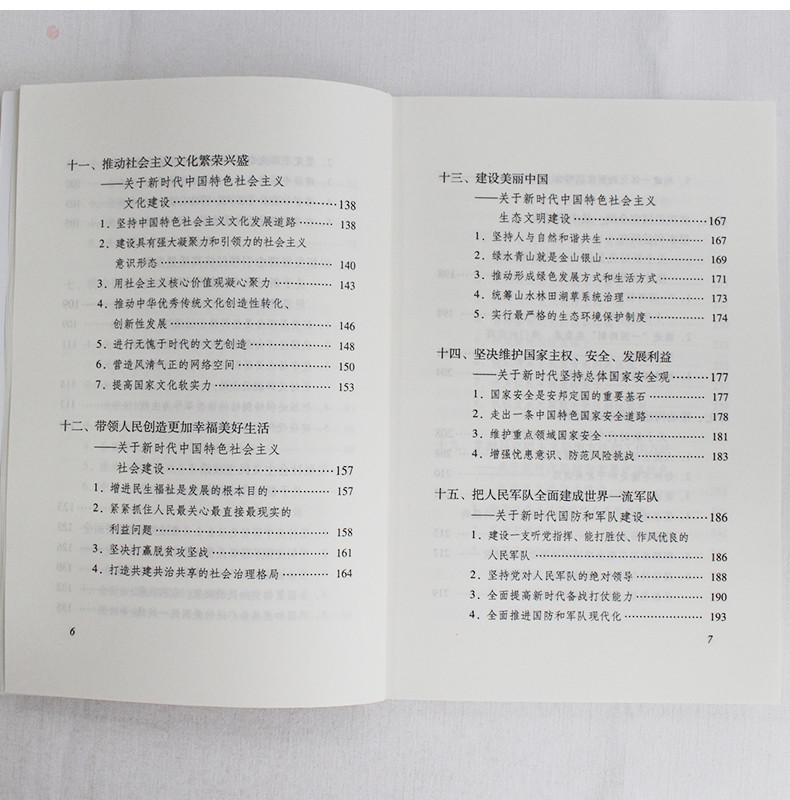 十一、推动社会主义文化繁荣兴盛
——关于新时代中国特色社会主义
文化建设……………………………138
1．坚持中国特色社会主义文化发展道路………138
2．建设具有强大凝聚力和引领力的社会主义
意识形态……………………………140
3．用社会主义核心价值观凝心聚力……………143
4．推动中华优秀传统文化创造性转化、
创新性发展…………………………146
5．进行无愧于时代的文艺创造…………………148
6．营造风清气正的网络空间……………………150
7．提高国家文化软实力…………………………153
十二、带领人民创造更加幸福美好生活
——关于新时代中国特色社会主义
社会建设……………………………157
1．增进民生福祉是发展的根本目的……………157
2．紧紧抓住人民最关心最直接最现实的
利益问题……………………………158
3．坚决打赢脱贫攻坚战…………………………161
4．打造共建共治共享的社会治理格局…………164
6
十三、建设美丽中国
——关于新时代中国特色社会主义
生态文明建设………………………167
1．坚持人与自然和谐共生………………………167
2．绿水青山就是金山银山………………………169
3．推动形成绿色发展方式和生活方式…………171
4．统筹山水林田湖草系统治理…………………174
5．实行最严格的生态环境保护制度……………174
十四、坚决维护国家主权、安全、发展利益
——关于新时代坚持总体国家安全观………177
1．国家安全是安邦定国的重要基石……………177
2．走出一条中国特色国家安全道路……………178
3．维护重点领域国家安全………………………181
4．增强忧患意识、防范风险挑战………………183
十五、把人民军队全面建成世界一流军队
——关于新时代国防和军队建设……………186
1．建设一支听党指挥、能打胜仗、作风优良的
人民军队……………………………186
2．坚持党对人民军队的绝对领导………………188
3．全面提高新时代备战打仗能力………………190
4．全面推进国防和军队现代化…………………193
7